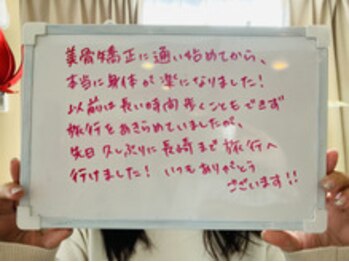 美骨矯正に通い始めてから、
本当に身体が楽になりました！
以前は長い時間歩くこともできず
旅行をあきらめていましたが、
先日久しぶりに長崎まで旅行へ
行けました！ いつもありがとう
ございます！！